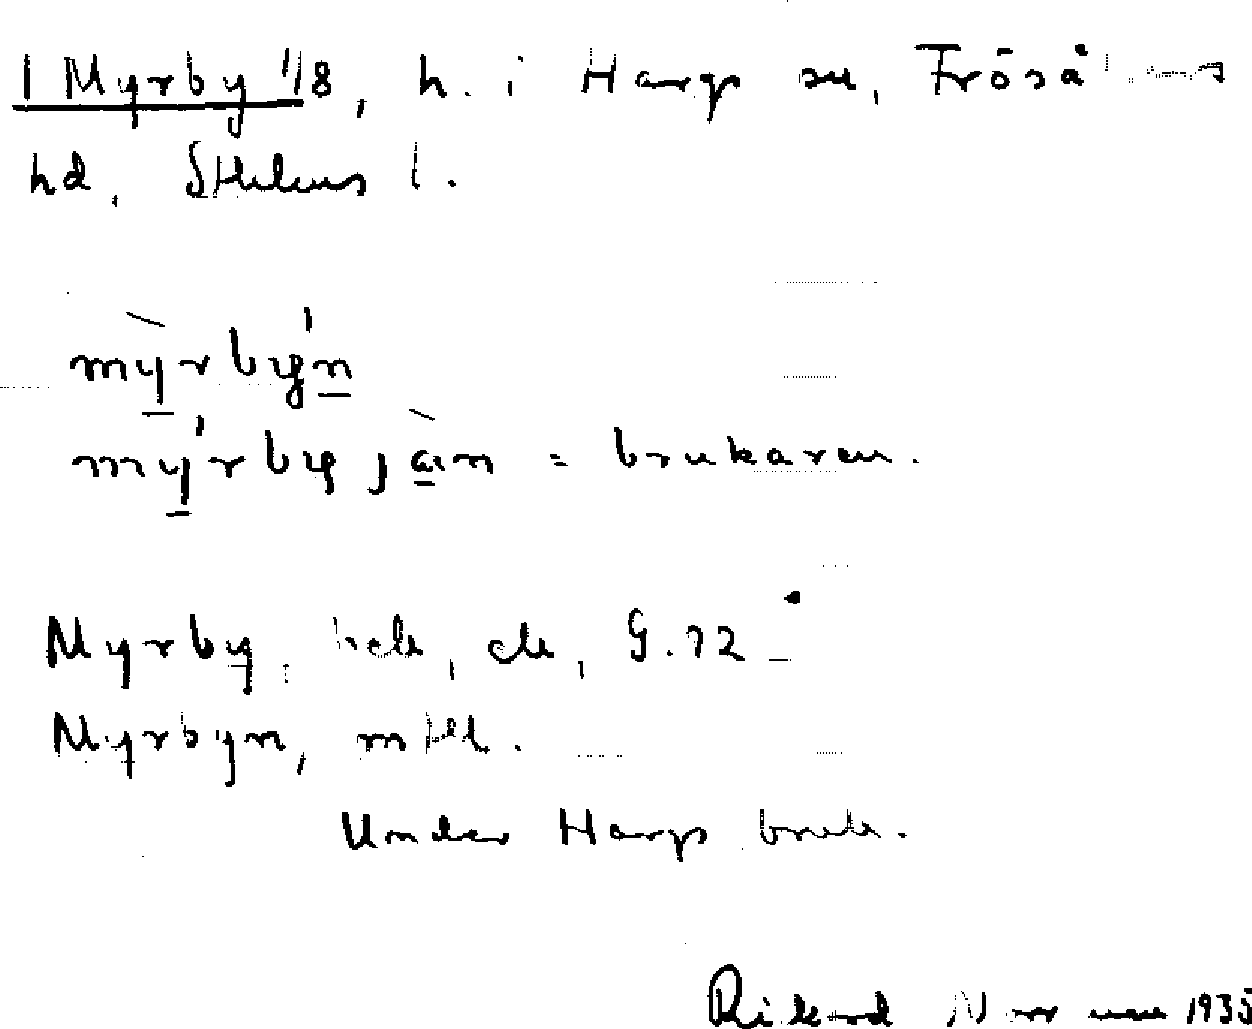 1 Myrby 1/8, h. i Hargs sn, Frösåkers
hd, Sthlms l.
mỳrbýn
mýrbyjàn = brukaren.
Myrby, hela, ek, G.72
Myrbyn, mtll.
Under Hargs bruk.
Rikard Norrman 1935